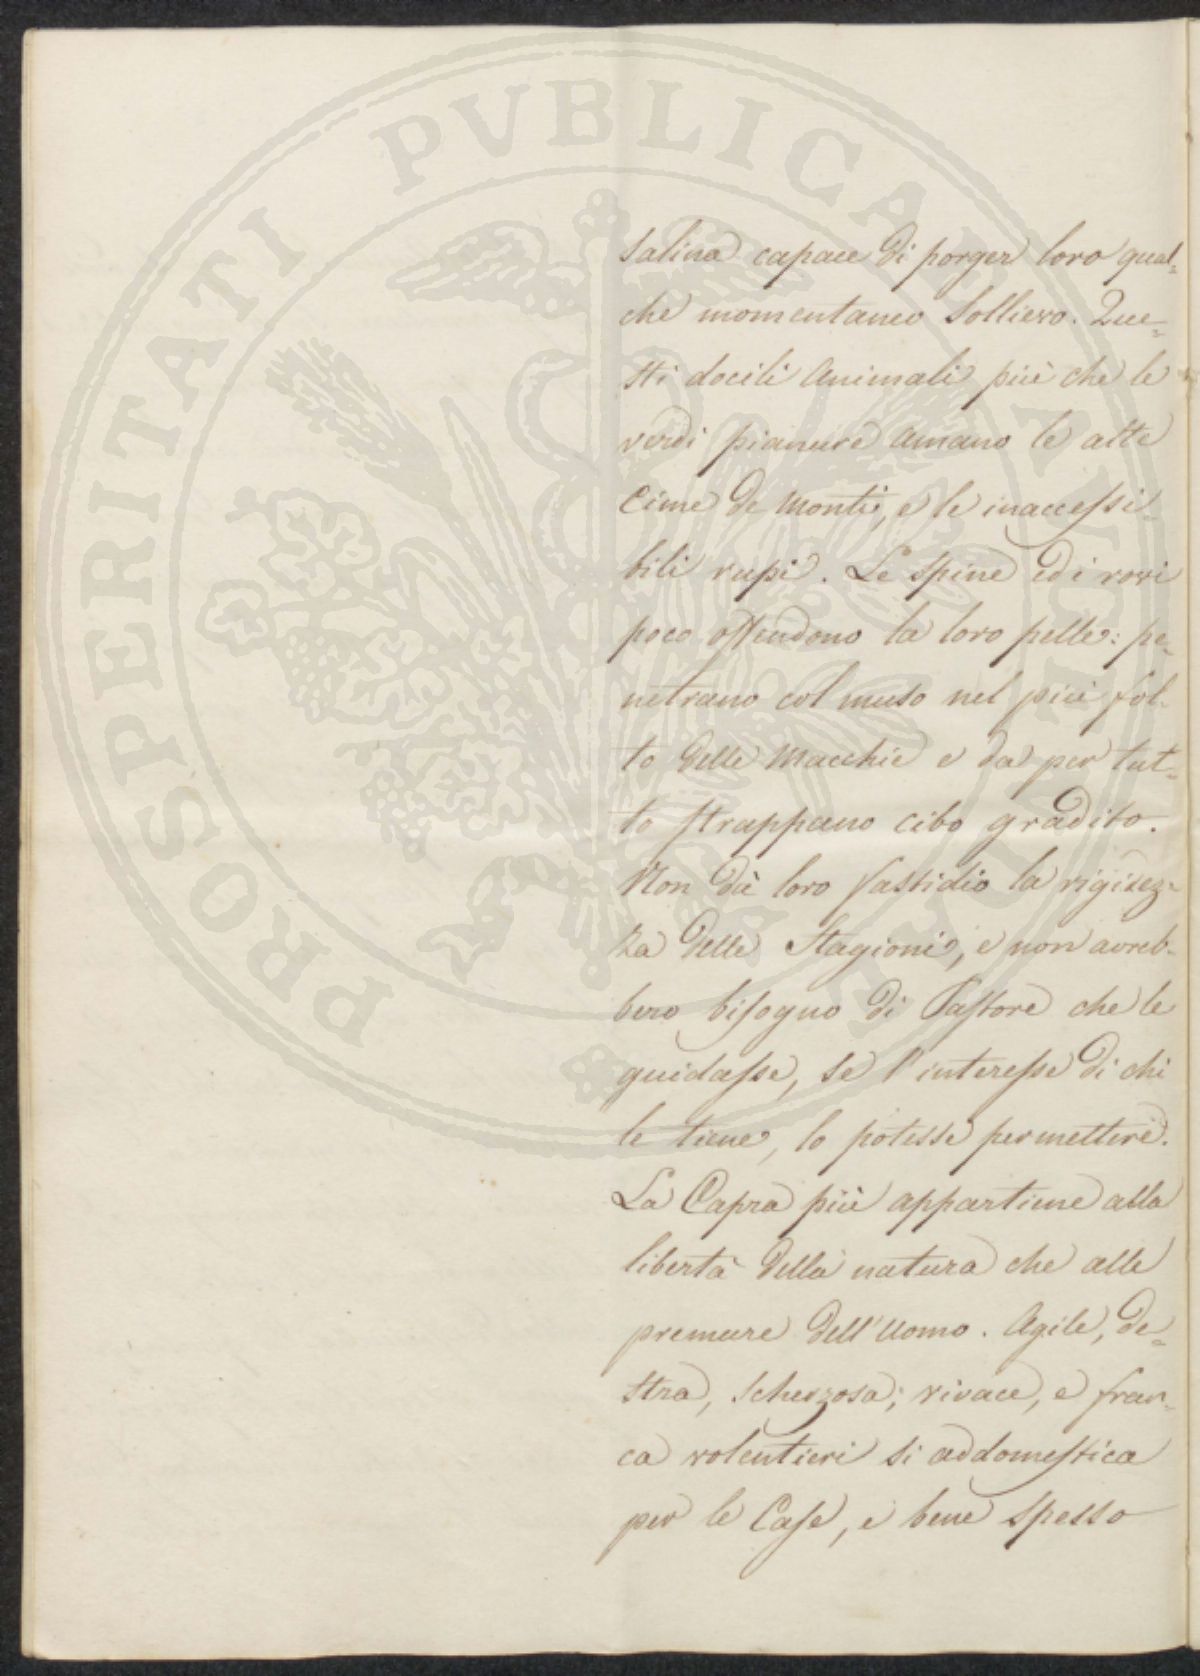 PROSPERITATI PVBLICAE AVGENDAE
salina capace di porger loro qual=
che momentaneo Sollievo. Que=
sti docili Animali più che le
verdi pianure amano le alte
Cime de Monti, e le inaccessi-
bili rupi. Le Spine ed i rovi
poco offendono la loro pelle: pe=
netrano col muso nel più fol-
to delle Macchie e da per tut=
to strappano cibo gradito.
Non dà loro fastidio la rigidez=
za delle Stagioni, e non avreb-
bero bisogno di Pastore che le
guidasse, se l'interesse di chi
le tiene, lo potesse permettere.
La Capra più appartiene alla
libertà della natura che alle
premure dell'Uomo. Agile, de=
stra, Scherzosa; vivace, e fran=
ca volentieri si addomestica
per le Case, e bene spesso